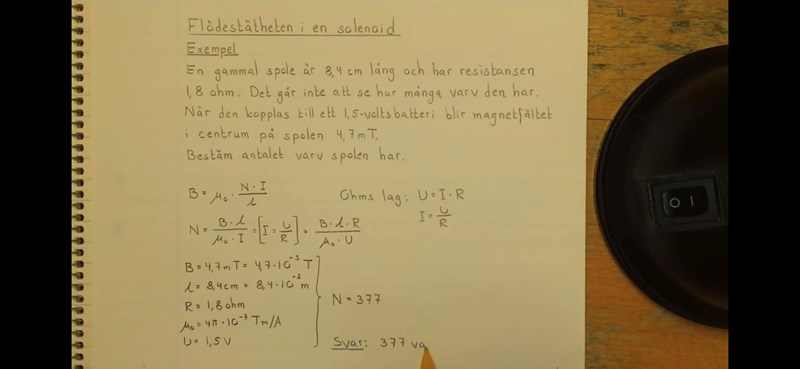 Flödestätheten i en solenoid
Exempel
En gammal spole är 8,4 cm lång och har resistansen
1,8 ohm. Det går inte att se hur många varv den har.
När den kopplas till ett 1,5-voltsbatteri blir magnetfältet
i centrum på spolen 4,7 mT.
Bestäm antalet varv spolen har.
B = μ₀ · N · I / l
Ohms lag: U = I · R
I = U / R
N = B · l / μ₀ · I = [I = U / R] = B · l · R / μ₀ · U
B = 4,7 mT = 4,7 · 10⁻³ T
l = 8,4 cm = 8,4 · 10⁻² m
R = 1,8 ohm
N = 377
μ₀ = 4π · 10⁻⁷ Tm/A
U = 1,5 V
Svar: 377 va
O I